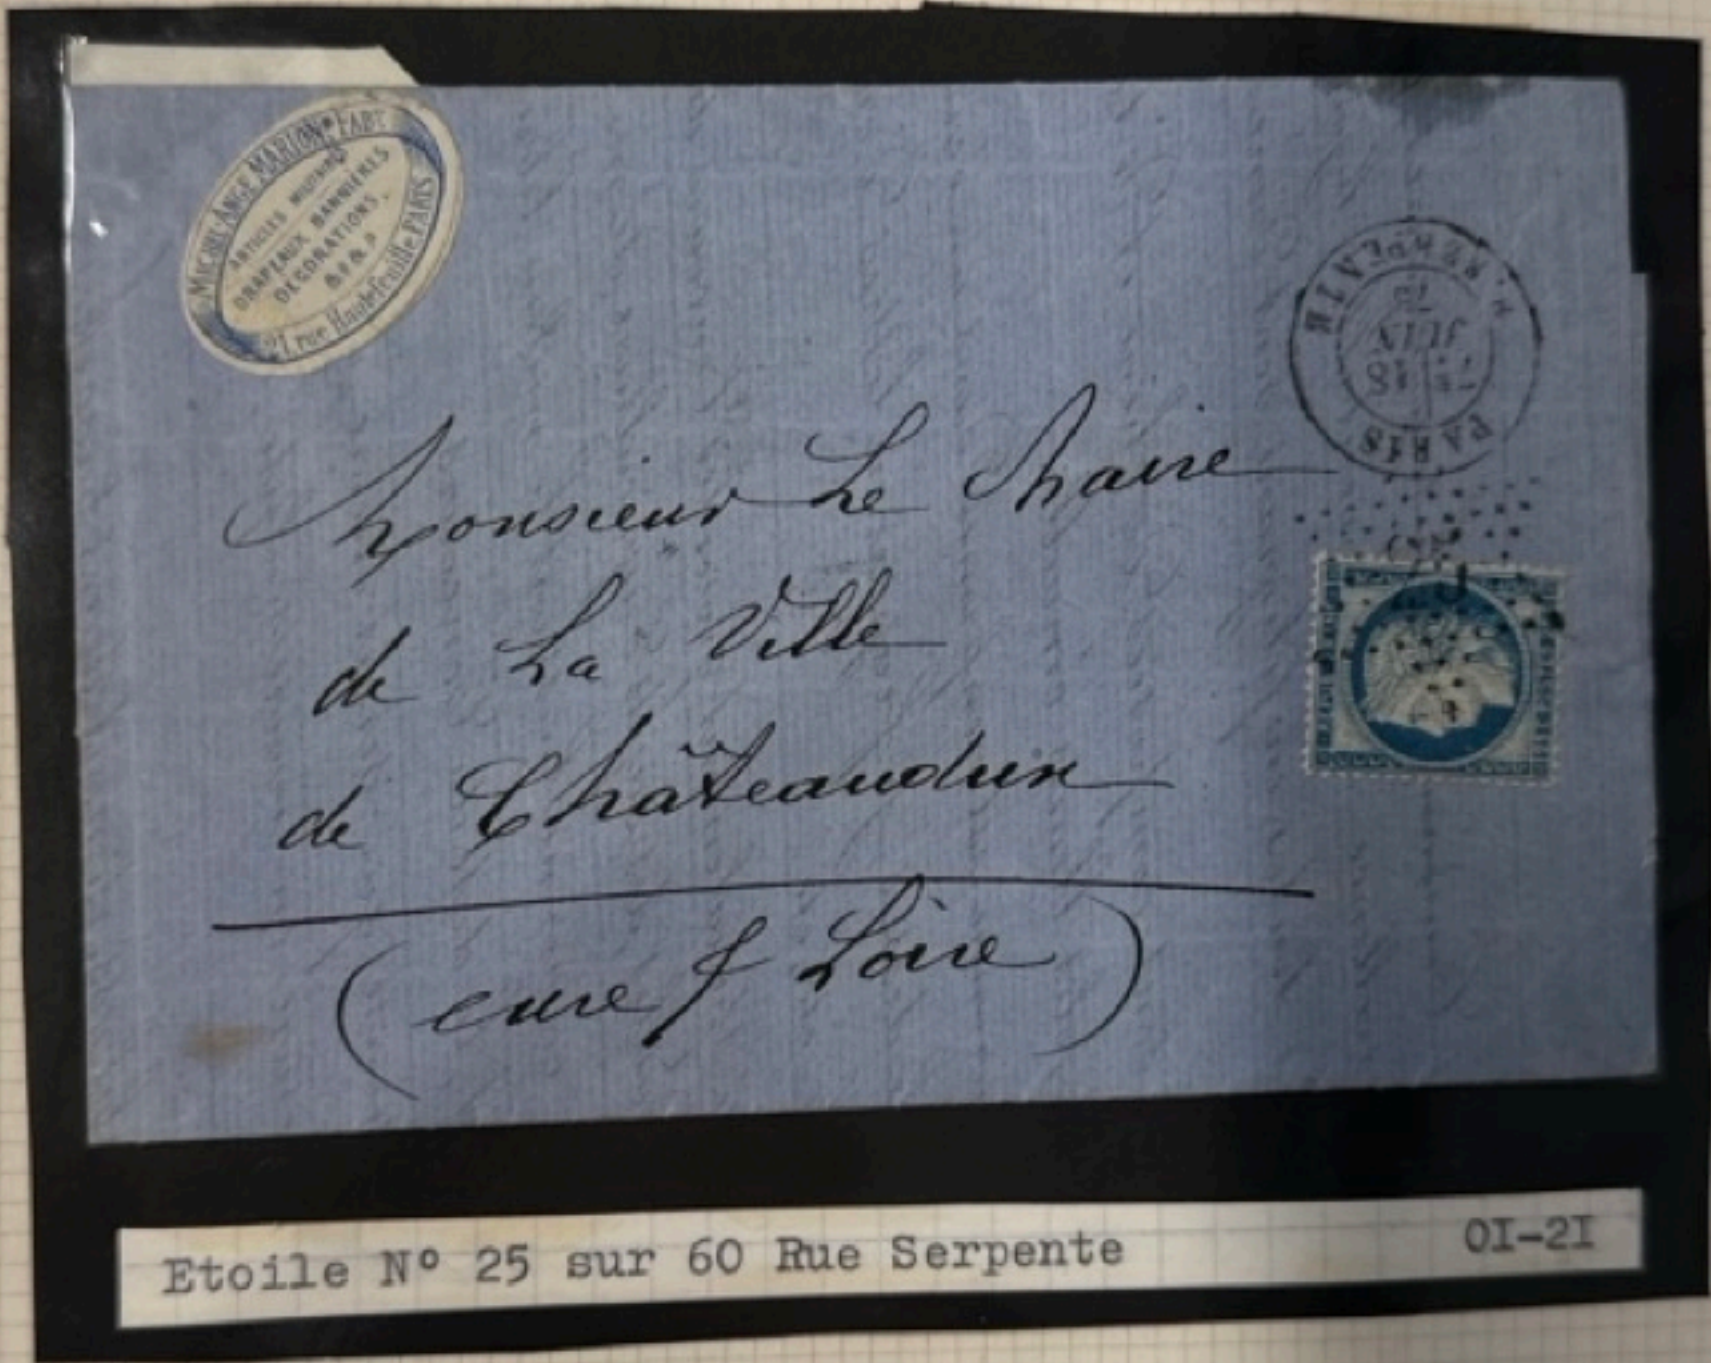 MICHEL-ANGE MARION, FABT.
ARTICLES MILITAIRES
DRAPEAUX BANNIÈRES
DECORATIONS,
&.&.&.
21, rue Hautefeuille PARIS
PARIS
18
JUIN
75
R. SERPENTE
Monsieur Le Maire
de La Ville
de Châteaudun
(eure & Loire)
Etoile Nº 25 sur 60 Rue Serpente
OI-2I